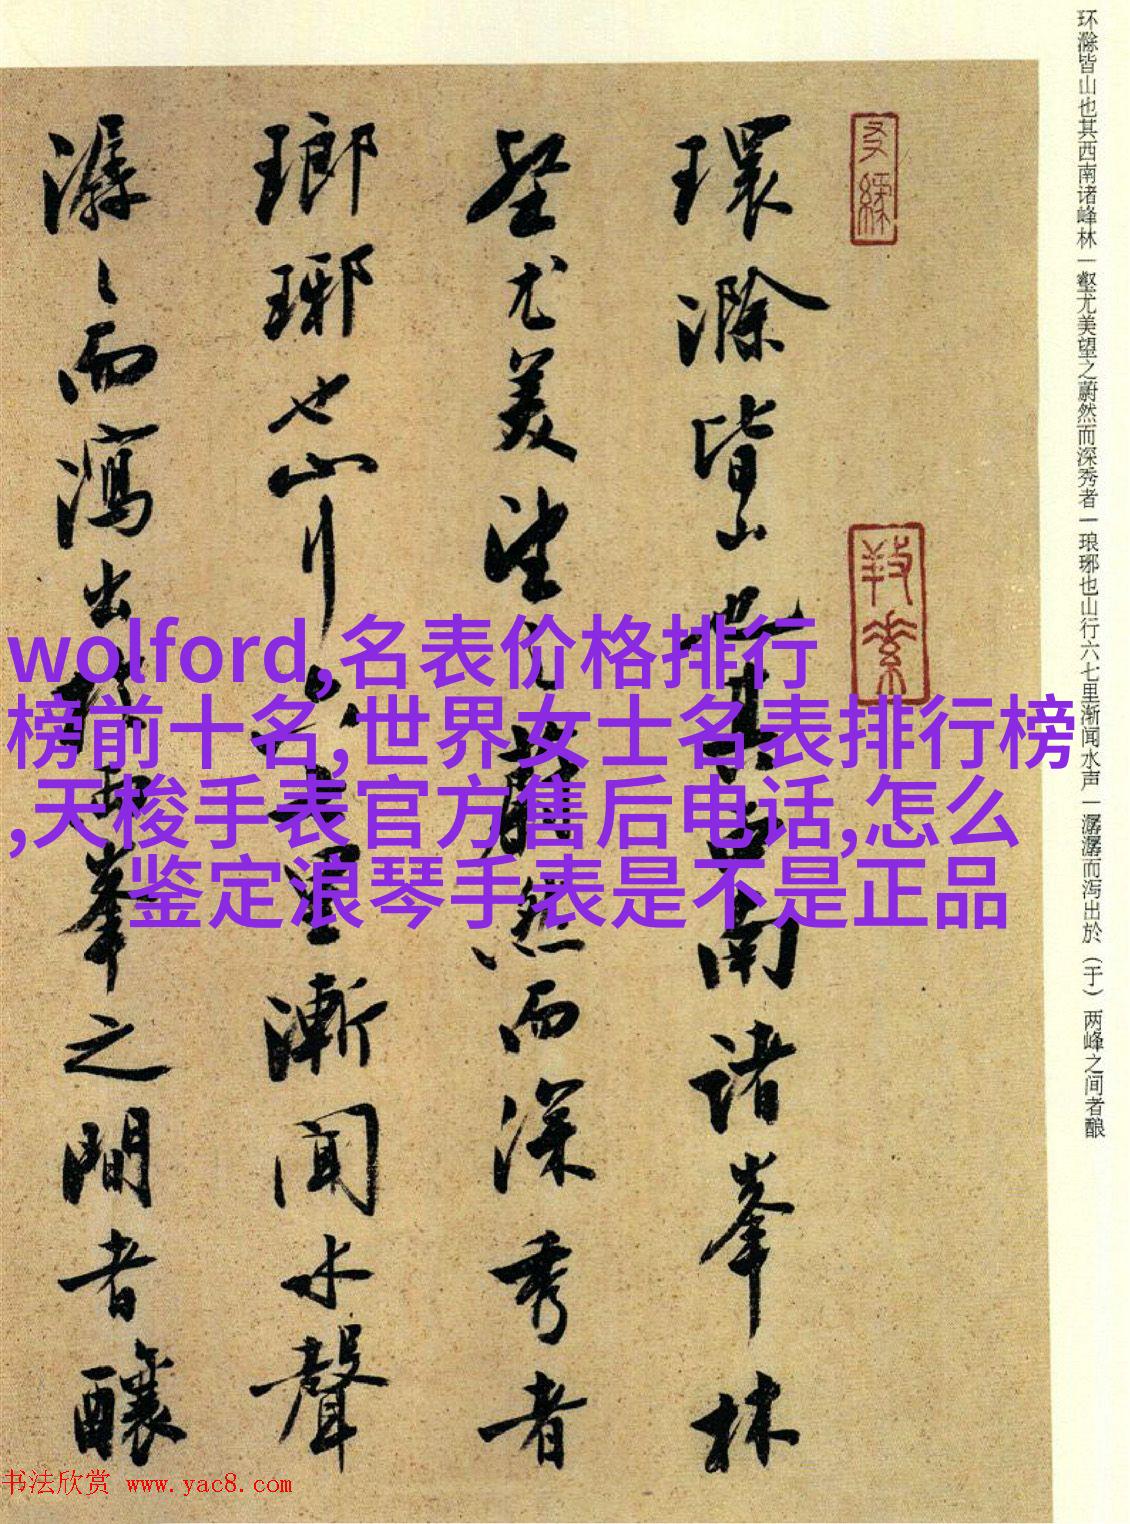 环滁皆山也其西南诸峰林一壑尤美望之蔚然而深秀者一琅琊也山行六七里渐闻水声一潺潺而泻出於（于）两峰之间者酿
環滁皆山也其西南諸峯林
壑尤美望之蔚然而深秀者
瑯琊也山行六七里漸聞水聲
潺々而瀉出於兩峯之間者釀
wolford,名表价格排行
榜前十名,世界女士名表排行榜
,天梭手表官方售后电话,怎么
鉴定浪琴手表是不是正品
书法欣赏 www.yac8.com